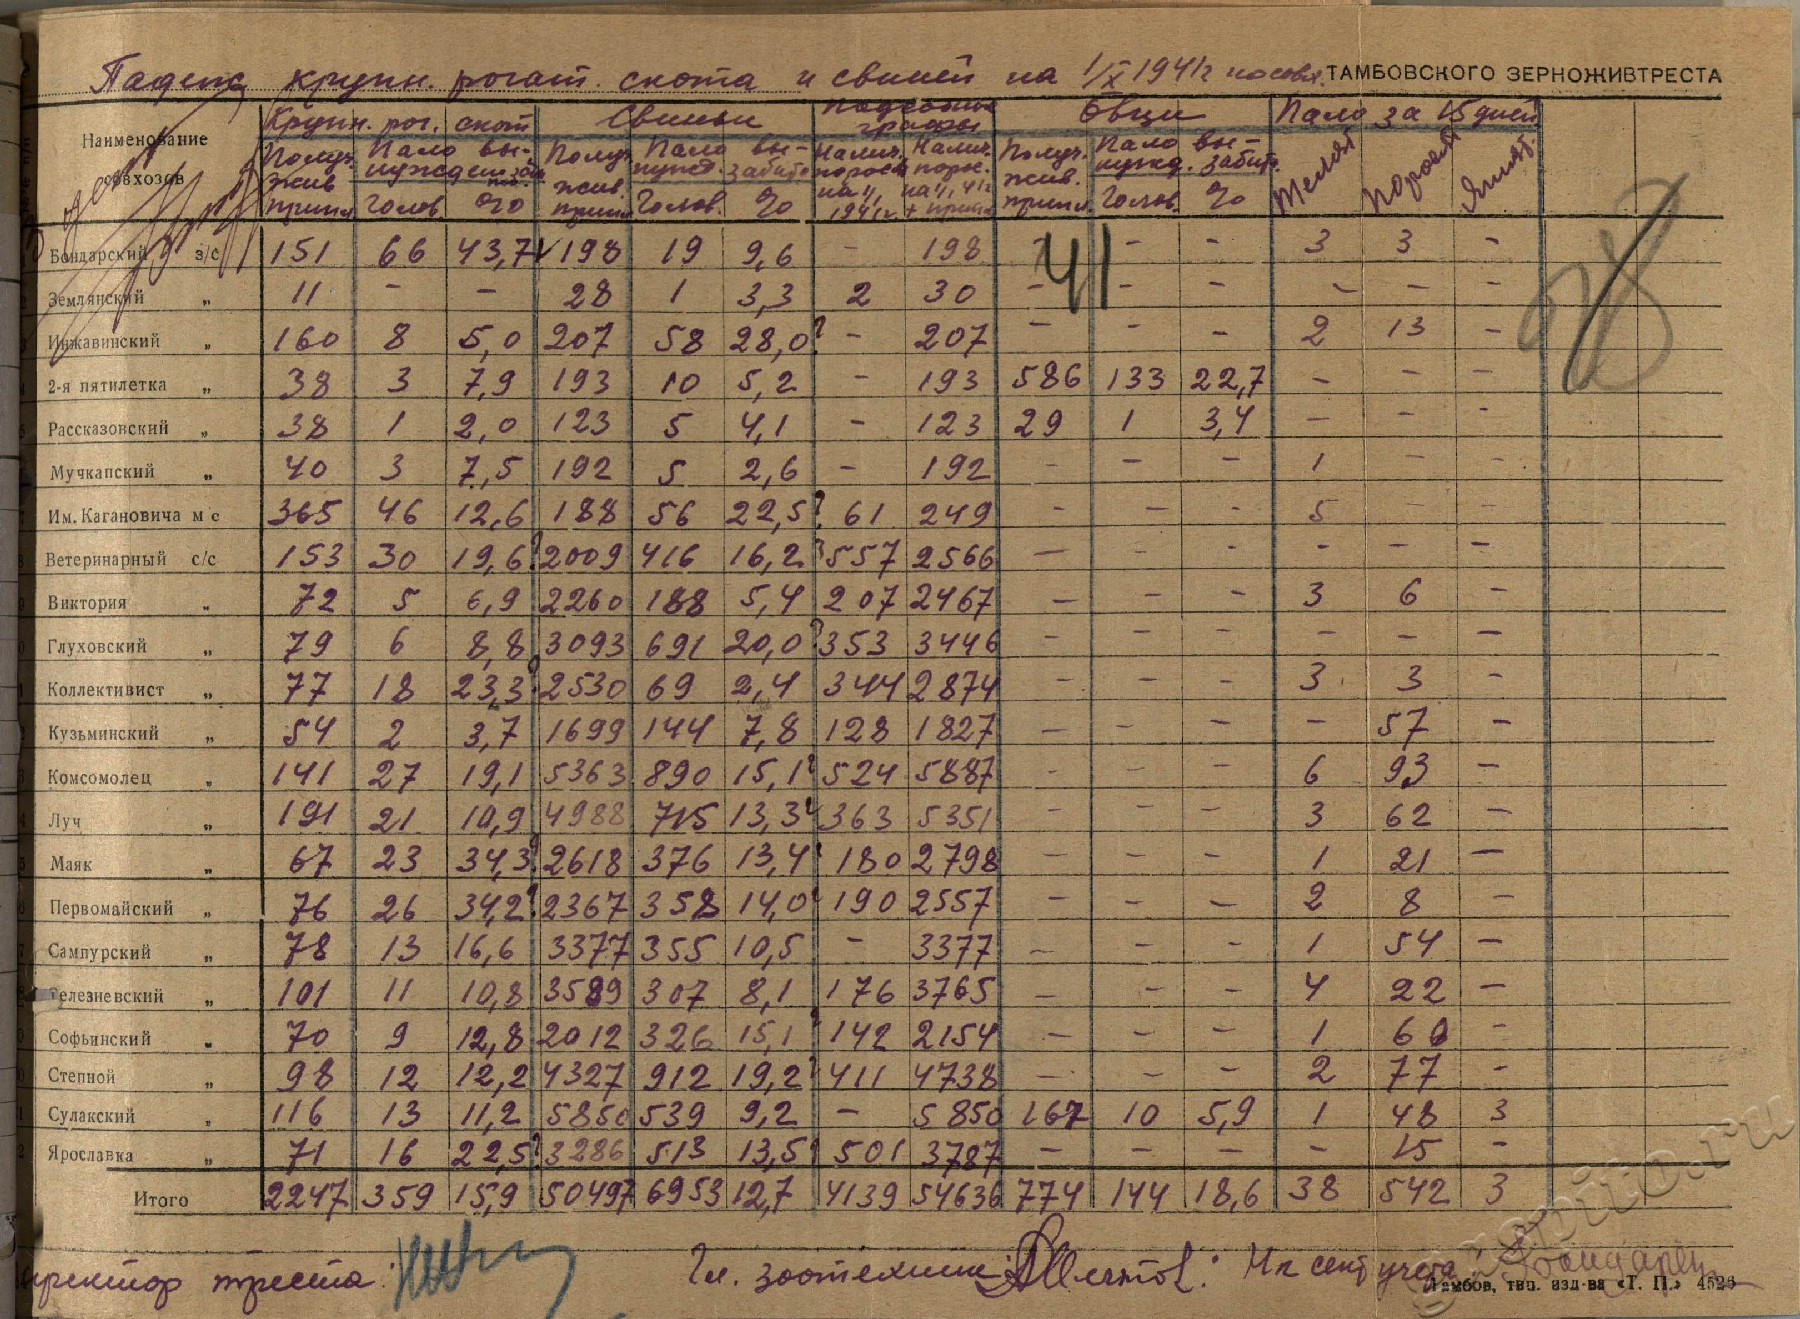 Падеж крупн. рогат. скота и свиней на 1/X 1941г по совх. ТАМБОВСКОГО ЗЕРНОЖИВТРЕСТА
Наименование совхозов | Крупн. рог. скот | Свиньи | Подсобные графы | Овцы | Пало за 15 дней
Получ. жив. припл. | Пало вы- нужден. заб. | Получ. жив. припл. | Пало вы- нужд. забито | Налич. порос. на 1941г. | Налич. порос. + припл. | Получ. жив. припл. | Пало вы- нужд. забито | Телят | Поросят | Ягнят
Голов. | % | Голов. | % | Голов. | %
Бондарский з/с 151 66 43,7 198 19 9,6 - 198 - - - 3 3 -
41
Землянский „ 11 - - 28 1 3,3 2 30 - - - - - -
Инжавинский „ 160 8 5,0 207 58 28,0? - 207 - - - 2 13 -
2-я пятилетка „ 38 3 7,9 193 10 5,2 - 193 586 133 22,7 - - -
Рассказовский „ 38 1 2,0 123 5 4,1 - 123 29 1 3,4 - - -
Мучкапский „ 40 3 7,5 192 5 2,6 - 192 - - - 1 - -
Им. Кагановича м с 365 46 12,6 188 56 22,5? 61 249 - - - 5 - -
Ветеринарный с/с 153 30 19,6? 2009 416 16,2? 557 2566 - - - - - -
Виктория „ 72 5 6,9 2260 188 5,4 207 2467 - - - 3 6 -
Глуховский „ 79 6 8,8 3093 691 20,0? 353 3446 - - - - - -
Коллективист „ 77 18 23,3? 2530 69 2,4 344 2874 - - - 3 3 -
Кузьминский „ 54 2 3,7 1699 144 7,8 128 1827 - - - - 57 -
Комсомолец „ 141 27 19,1 5363 890 15,1? 524 5887 - - - 6 93 -
Луч „ 191 21 10,9 4988 715 13,3? 363 5351 - - - 3 62 -
Маяк „ 67 23 34,3? 2618 376 13,4? 180 2798 - - - 1 21 -
Первомайский „ 76 26 34,2? 2367 358 14,0? 190 2557 - - - 2 8 -
Сампурский „ 78 13 16,6 3377 355 10,5 - 3377 - - - 1 54 -
Селезневский „ 101 11 10,8 3589 307 8,1 176 3765 - - - 4 22 -
Софьинский „ 70 9 12,8 2012 326 15,1? 142 2154 - - - 1 60 -
Степной „ 98 12 12,2 4327 912 19,2? 411 4738 - - - 2 77 -
Сулакский „ 116 13 11,2 5850 539 9,2 - 5850 167 10 5,9 1 48 3
Ярославка „ 71 16 22,5? 3286 513 13,5? 501 3787 - - - - 15 -
Итого 2247 359 15,9 50497 6953 12,7 4139 54636 774 144 18,6 38 542 3
Директор треста: Гл. зоотехник Нач сект учета
Тамбов, тип. изд-ва «Т. П.» 4526